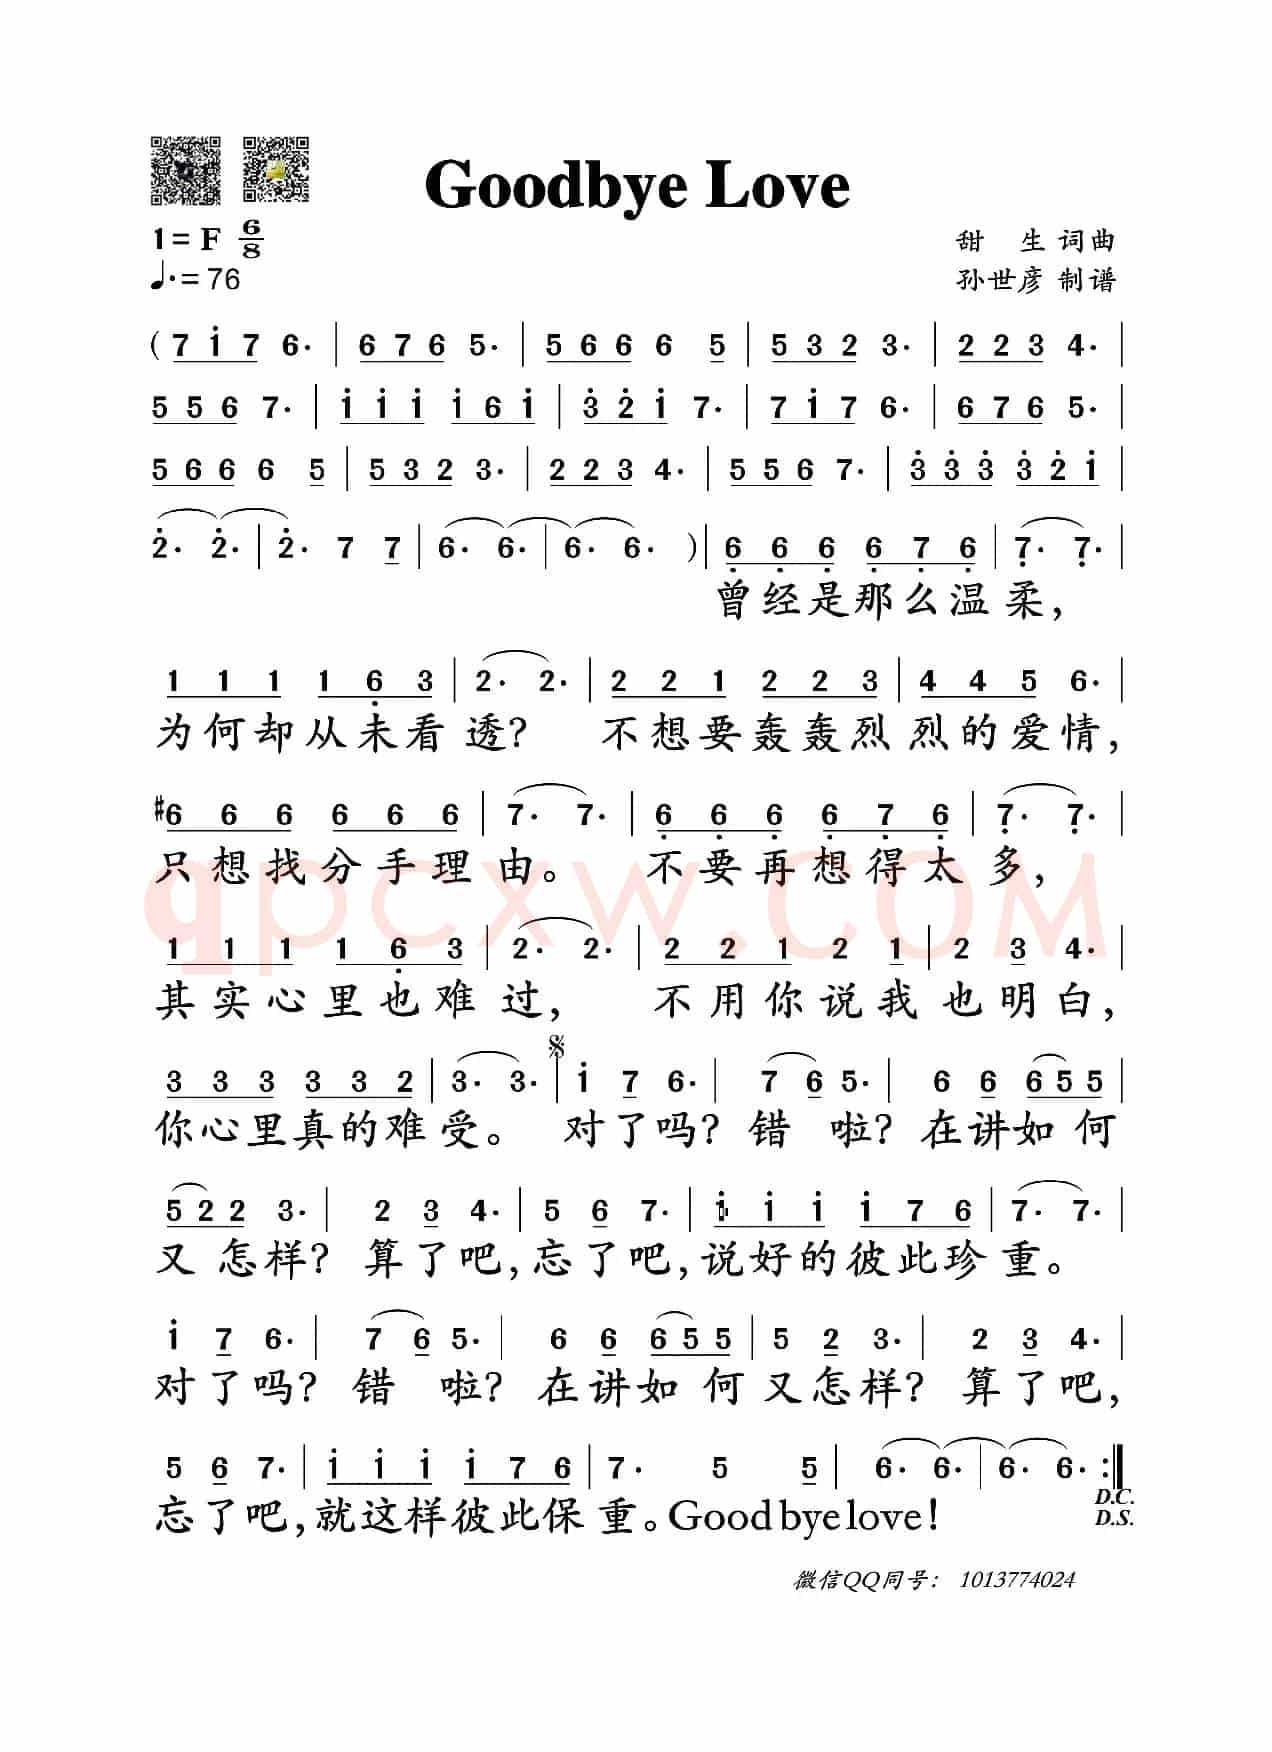 Goodbye Love
1= F 6/8
甜 生 词曲
♩. = 76
孙世彦 制谱
( 7 i 7 6. | 6 7 6 5. | 5 6 6 6 5 | 5 3 2 3. | 2 2 3 4. |
5 5 6 7. | i i i i 6 i | 3̇ 2̇ i 7. | 7 i 7 6. | 6 7 6 5. |
5 6 6 6 5 | 5 3 2 3. | 2 2 3 4. | 5 5 6 7. | 3̇ 3̇ 3̇ 3̇ 2̇ i |
2̇. 2̇. | 2̇. 7 7 | 6. 6. | 6. 6. ) | 6̣ 6̣ 6̣ 6̣ 7̣ 6̣ | 7̣. 7̣. |
曾经是那么温柔,
1 1 1 1 6̣ 3 | 2. 2. | 2 2 1 2 2 3 | 4 4 5 6. |
为何却从未看透? 不想要轰轰烈烈的爱情,
#6 6 6 6 6 6 | 7. 7. | 6̣ 6̣ 6̣ 6̣ 7̣ 6̣ | 7̣. 7̣. |
只想找分手理由。 不要再想得太多,
1 1 1 1 6̣ 3 | 2. 2. | 2 2 1 2 1 | 2 3 4. |
其实心里也难过, 不用你说我也明白,
3 3 3 3 3 2 | 3. 3. | i 7 6. | 7 6 5. | 6 6 6 5 5 |
你心里真的难受。 对了吗? 错 啦? 在讲如何
5 2 2 3. | 2 3 4. | 5 6 7. | i i i i 7 6 | 7. 7. |
又 怎样? 算了吧, 忘了吧, 说好的彼此珍重。
i 7 6. | 7 6 5. | 6 6 6 5 5 | 5 2 3. | 2 3 4. |
对了吗? 错 啦? 在讲如何又怎样? 算了吧,
5 6 7. | i i i i 7 6 | 7. 5 5 | 6. 6. | 6. 6. :|
忘了吧, 就这样彼此保重。Good bye love!
D.C.
D.S.
微信QQ同号： 1013774024
qpcxw.COM